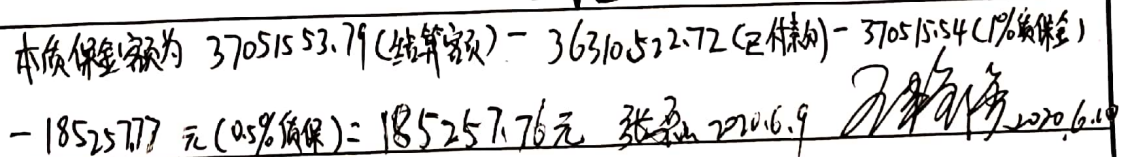 本质保金额为 37051553.79(结算额)－36310522.72(已付款)－370515.54(1%质保金)
－185257.77 元(0.5%质保)=185257.76元 2020.6.9 2020.6.10